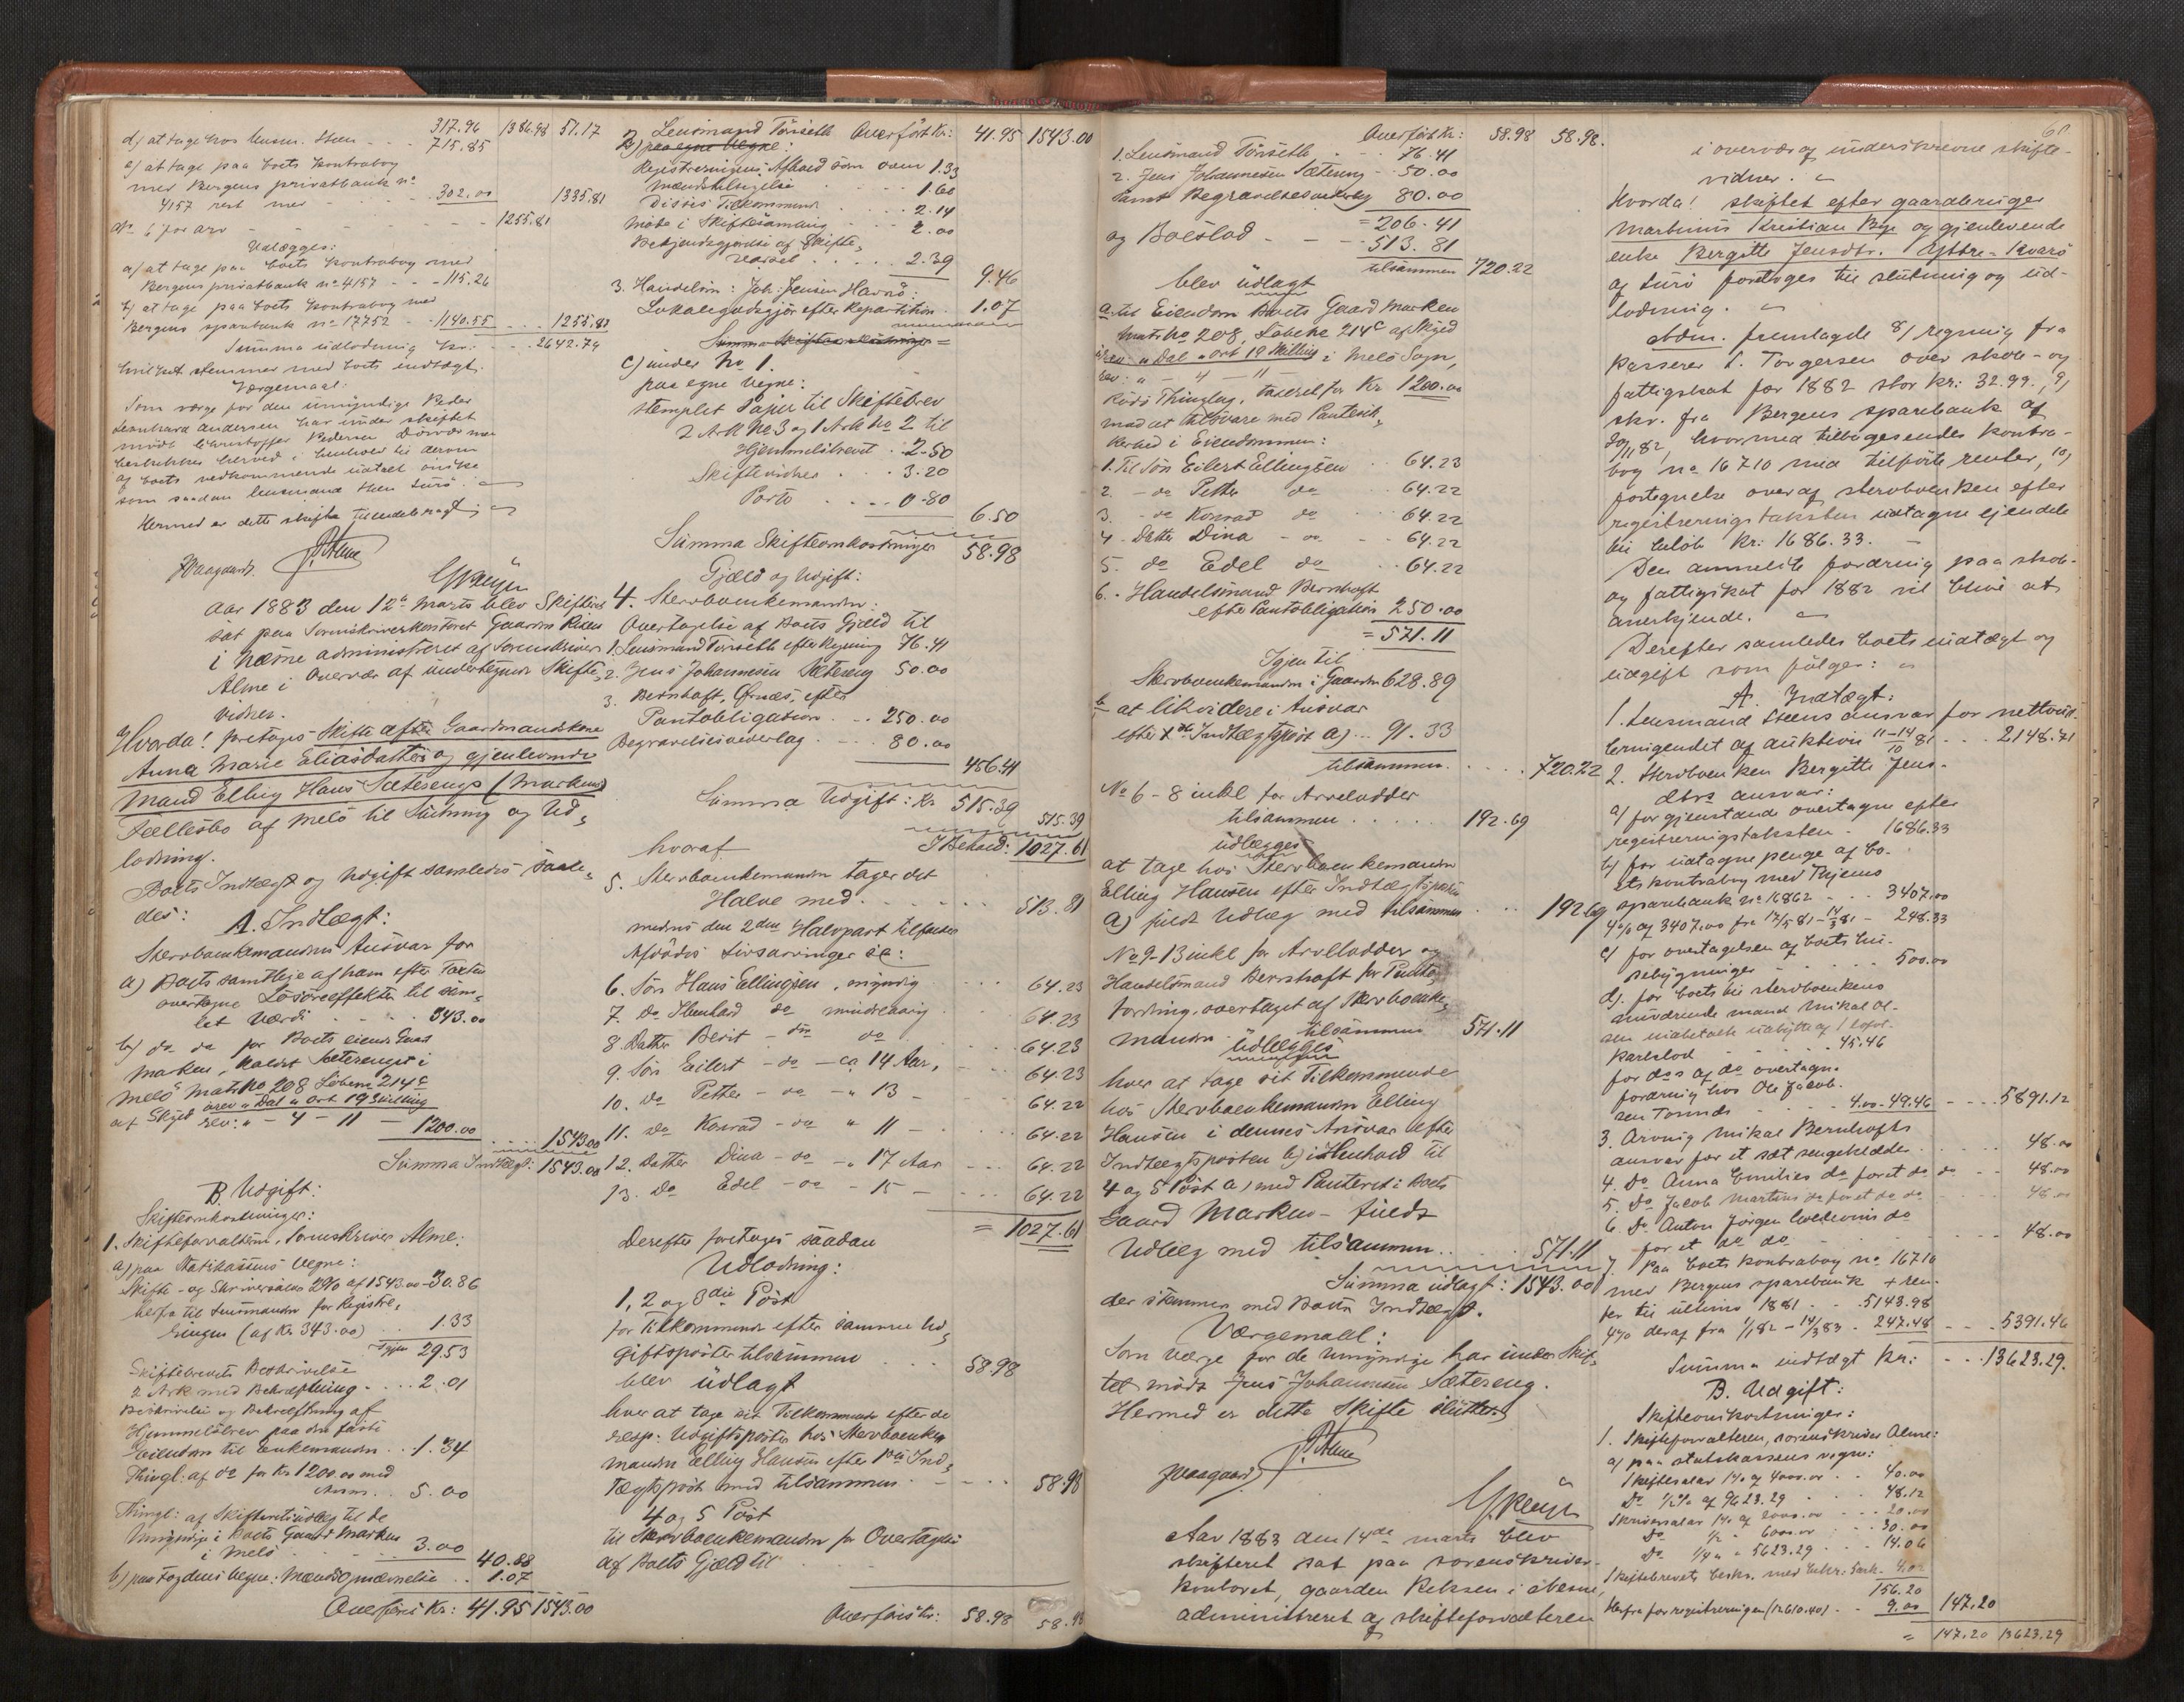 317.96 1386.98 57.17
d) at tage hos lensm. Steen - - - 715.85
e) at tage paa boets kontrabog
med Bergens privatbank no
4157 rest med - - - 302.00 1335.81
No 6 for arv - - - - 1255.81
Udlægges:
a) at tage paa boets kontrabog med
Bergens privatbank no 4157 - - - 115.26
b) at tage paa boets kontrabog med
Bergens sparebank no 17752 - - 1140.55 - - - 1255.81
Summa udlodning kr: - - 2642.79
hvilket stemmer med boets indtægt.
Værgemaal:
Som værge for den umyndige Peder
Leonhard Andersen har under skiftet
mødt Christoffer Pedersen
beskikkes herved i henhold til derom
af boets vedkommende udtalt ønske
som saadan lensmand Steen Lurö.
Hermed er dette skifte tilendebragt
Aar 1883 den 12te Marts blev Skifteret
sat paa Sorenskriverkontoret Gaarden Riksen
i Næsne administreret af Sorenskriver
Alme i Overvær af undertegnede Skifte-
vidner.
Hvorda! foretoges Skifte efter Gaardmandskone
Anna Marie Eliasdatter og gjenlevende
Mand Elling Hans. Sæterengs (Marken)
Fællesbo af Melö til Slutning og Ud-
lodning.
Boets Indtægt og Udgift samledes saale-
des:
A. Indtægt:
Stervboenkemandens Ansvar for
a) Boets samtlige af ham efter Taxten
overtagne Lösöreeffekter til sam-
let Værdi - - - 343.00
b) do do for Boets eiende Gaard
Marken, kaldet Sæterenget i
Melö Matr No 208 Löbeno 214c
af Skyld ørev: " Dal " ort 19 Skilling
rev: " - 4 - 11 - 1200.00 - - - 1543.00
Summa Indtægt: 1543.00
B. Udgift:
Skifteomkostninger:
1. Skifteforvalteren, Sorenskriver Alme:
a) paa Statskassens Vegne:
Skifte- og Skriversalær 2% af 1543.00 - 30.86
herfra til Lensmanden for Registre-
ringen (af Kr 343.00) - - 1.33
Igjen 29.53
Skiftebrevets Beskrivelse
2 Ark med Bekræftning - - - 2.01
Beskrivelse og Bekræftning af
Hjemmelsbrev paa den faste
Eiendom til Enkemanden - - 1.34
Thingl: af do for Kr 1200.00 med
- - 5.00
Thingl: af Skifteretsudlæg til de
Umyndige i Boets Gaard Marken
i Melö - - - 3.00 40.88
b) paa Fogdens Vegne: Mændsopnævnelse - - 1.07
Overföres Kr: 41.95 1543.00
Overfört Kr: 41.95 1543.00
2. Lensmand Törseth
Registreringens Afhold som oven 1.33
Mændstilsigelse - - - 1.60
Disses Tilkommende - - - 2.14
Möde i Skiftesamling - - - 2.00
Bekjendtgjørelse af Skifte-
varsel - - - 2.39 9.46
3. Handelsm: Joh: Jensen Havnö:
Lokalegodtgjör: efter Repartition - - 1.07
Summa Skifteomkostninger =
c) under No 1.
paa egne Vegne:
Stemplet Papir til Skiftebrev
2 Ark No 3 og 1 Ark No 2 til
Hjemmelsbrevet - 2.50
Skiftevidner - - - 3.20
Porto - - - 0.80 6.50
Summa Skifteomkostninger 58.98
Gjæld og Udgift:
4. Stervboenkemanden:
Overtagelse af Boets Gjæld til
1. Lensmand Törseth efter Regning 76.41
2. Jens Johannesen Sætereng 50.00
3. Bernhoft, Örnæs, efter
Pantobligation - - 250.00
Begravelsesvederlag - - - 80.00 456.41
Summa Udgift: Kr 515.39 515.39
hvoraf I Behold: 1027.61
5. Stervboenkemanden tager det
Halve med - - - 513.81
medens den 2den Halvpart tilfalder
Afdødes Livsarvinger sc:
6. Søn Hans Ellingsen, myndig - - - 64.23
7. Do Ibenhard do mindreaarig - - - 64.23
8. Datter Berit - do do - - - 64.23
9. Søn Eilert - do - ca 14 Aar, - - 64.23
10. Do Petter - do - " 13 - - - 64.22
11. Do Konrad - do " 11 - - - 64.22
12. Datter Dina - do - " 17 Aar - - - 64.22
13. Do Edel - do - 15 - - - 64.22
= 1027.61
Derefter foretoges saadan
Udlodning:
1, 2 og 3die Post
for Tilkommende efter samme Ud-
giftsposter tilsammen - - - 58.98
blev udlagt
hver at tage sit Tilkommende efter de
resp: Udgiftsposter hos Stervboenke-
manden Elling Hansen efter 1ste Ind-
tægtspost med tilsammen - - - 58.98
4 og 5 Post
til Stervboenkemanden for Overtagelse
af Boets Gjæld til
Overføres Kr: 58.98 58.98
Overført Kr: 58.98 58.98.
1. Lensmand Törseth - - - 76.41
2. Jens Johannesen Sætereng - - 50.00
samt Begravelsesvederlag 80.00
= 206.41
og Boeslod - - - 513.81
tilsammen 720.22
blev udlagt
a. til Eiendom Boets Gaard Marken
Matr: No 208, Löbeno 214c af Skyld
ørev: " Dal " ort 19 Skilling i Melö Sogn,
rev: " - 4 - 11 -
Rödö Thinglag, taxeret for Kr 1200.00
mod at tilsvare med Pantesik-
kerhed i Eiendommen:
1. Til Søn Eilert Ellingsen - - 64.23
2. - do Petter do - 64.22
3. - do Konrad do - - 64.22
4. Datter Dina - do - - 64.22
5. do Edel do - - 64.22
6. - Handelsmand Bernhoft
efter Pantobligation 250.00
= 571.11
Igjen til
Stervboenkemanden i Gaarden 628.89
b. at likvidere i Ansvar
efter 1ste Indtægtspost a) - - 91.33
tilsammen - - - 720.22
No 6 - 8 inkl for Arvelodder
tilsammen - - - 192.69
udlægges
at tage hos Stervboenkemanden
Elling Hansen efter Indtægtsposten
a) fuldt Udlæg med tilsammen - - 192.69
No 9-13 inkl for Arvelodder og
Handelsmand Bernhoft for Pante-
fordring, overtaget af Stervboenke-
manden tilsammen 571.11
udlægges
hver at tage sit Tilkommende
hos Stervboenkemanden Elling
Hansen i dennes Ansvar efter
Indtægtsposten b) i Henhold til
4 og 5 Post a) med Panteret i Boets
Gaard Marken - fuldt
Udlæg med tilsammen - - 571.11
Summa udlagt: 1543.00
der stemmer med Boets Indtægt.
Værgemaal:
Som Værge for de Umyndige har under Skif-
tet mødt Jens Johannesen Sætereng.
Hermed er dette Skifte sluttet.
Aar 1883 den 14de marts blev
skifteret sat paa sorenskriver-
kontoret, gaarden Riksen i Næsne,
administreret af skifteforvalteren
i overvær af underskrevne skifte-
vidner.
Hvorda! skiftet efter gaardbruger
Martinus Kristian Bye og gjenlevende
enke Bergitte Jensdtr. Kvarö
af Lurö foretoges til slutning og ud-
lodning.
Adm. fremlagde 8) regning fra
kasserer L. Torgersen over skole- og
fattigskat for 1882 stor kr: 32.99., 9)
skr. fra Bergens sparebank af
20/11 82, hvormed tilbagesendes kontra-
bog no 16710 med tilførte renter, 10)
fortegnelse over af stervboenken efter
registreringstaksten udtagne ejendele
til beløb kr: 1686.33. -
Den anmeldte fordring paa skole-
og fattigskat for 1882 vil blive at
anerkjende.
Derefter samledes boets indtægt og
udgift som følger:
A. Indtægt:
1. Lensmand Steens ansvar for nettoud-
bringendet af auktion 11-14/10 81 - - - 2148.71
2. Stervboenken Bergitte Jens-
dtrs ansvar:
a) for gjenstande overtagne efter
registreringstaksten - 1686.33
b) for udtagne penge af bo-
ets kontrabog med Hjems
sparebank no 16862 - - - 3407.00
4% af 3407.00 fra - 248.33
c) for overtagelsen af boets hu-
sebygninger - - - 500.00
d) for boets til stervboenkens
nuværende mand Mikal Ol-
sen udbetalte udbytte af 1 lofot-
karlslod - - - 45.46
for dos af do overtagne
fordring hos Ole Jakob-
sen Tonnes - - - 4.00 - 49.46 - - - 5891.12
3. Arving Mikal Bernhofts
ansvar for et sæt sengeklæder - - - 48.00
4. Do Anna Emilies do for et do do - - 48.00
5. Do Jakob Martins do for et do do 48.00
6. Do Anton Jörgen do
for et do do - - - 48.00
7. Paa boets kontrabog no 16710
med Bergens sparebank + ren-
ter til ultimo 1881 - - 5143.98
4% deraf fra 1/1 82 - 14/3 83 - 247.48 - - 5391.46
Summa indtægt kr: - - 13623.29.
B. Udgift:
Skifteomkostninger:
1. Skifteforvalteren, sorenskriver Alme:
a) paa statskassens vegne:
Skiftesalær 1% af 4000.00 - - 40.00
Do 1/2% af 9623.29 - - 48.12
Skriversalær 1% af 2000.00 - - 20.00
Do 1/2 " 6000.00 - - 30.00
Do 1/4 " " 5623.29 - - 14.06
Skiftebrevets beskr. med bekr: 5 ark - 4.02
156.20
Herfra for registreringen - - 9.00 147.20
= 147.20 13623.29